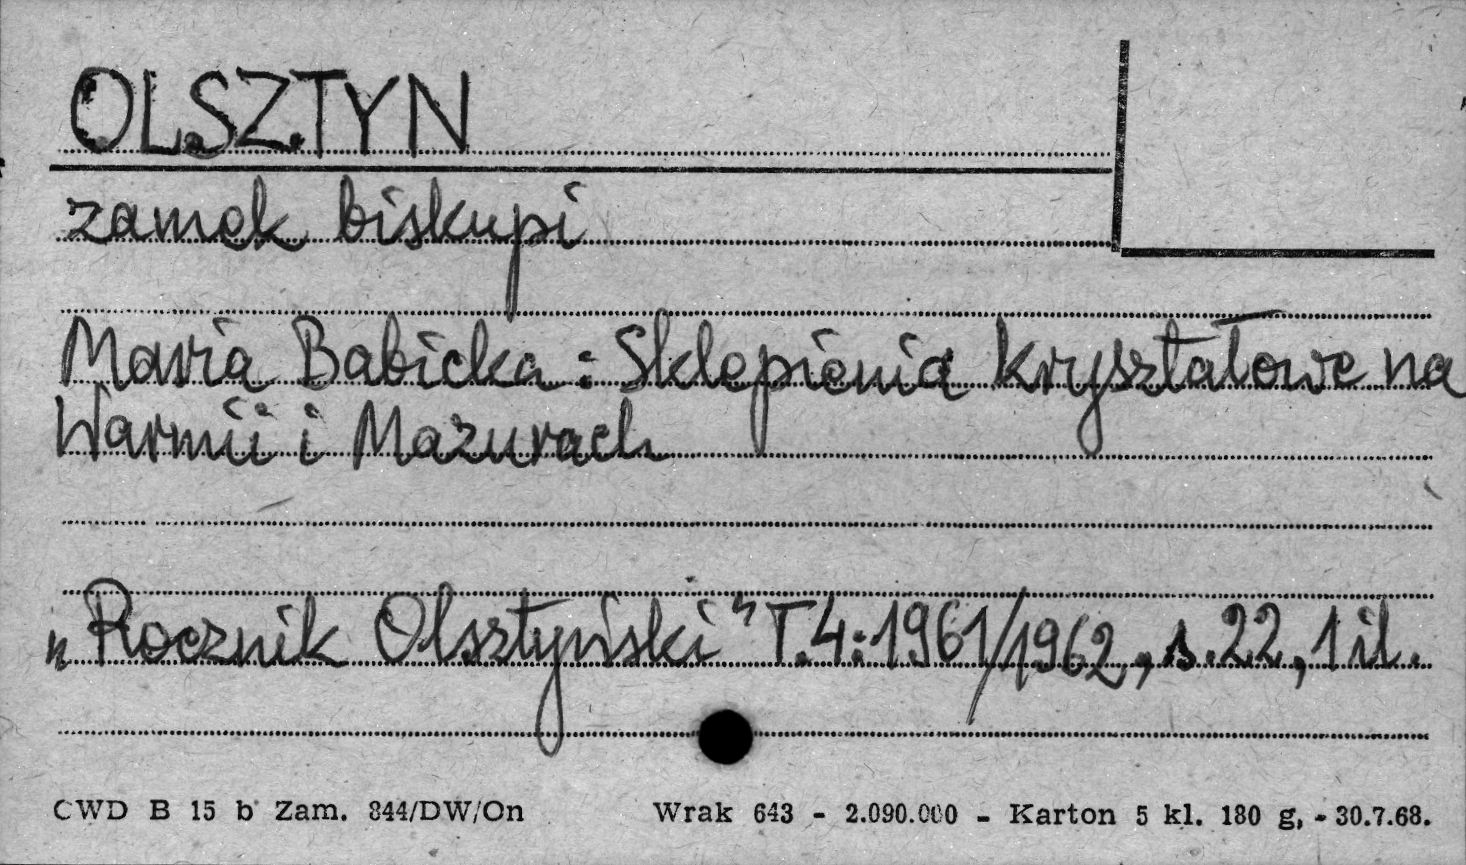 OLSZTYN
zamek biskupi
Maria Babicka: Sklepienia kryształowe na
Warmii i Mazurach
„Rocznik Olsztyński" T.4:1961/1962, s.22, 1 il.
CWD B 15 b Zam. 344/DW/On Wrak 643 - 2.090.000 - Karton 5 kl. 180 g, - 30.7.68.